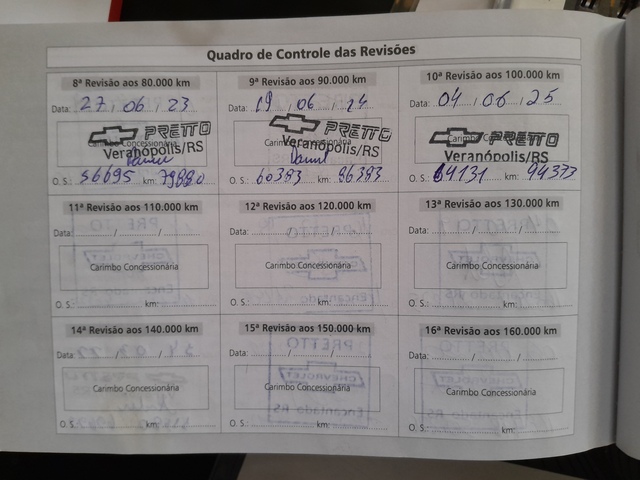 Quadro de Controle das Revisões
8ª Revisão aos 80.000 km
Data: 27/06/23
Carimbo Concessionária
PRETTO
Veranópolis/RS
O. S.: 56695 km: 79880
9ª Revisão aos 90.000 km
Data: 19/06/24
Carimbo Concessionária
PRETTO
Veranópolis/RS
O. S.: 60383 km: 86383
10ª Revisão aos 100.000 km
Data: 04/06/25
Carimbo Concessionária
PRETTO
Veranópolis/RS
O. S.: 64131 km: 94373
11ª Revisão aos 110.000 km
Data: / /
Carimbo Concessionária
O. S.: km:
12ª Revisão aos 120.000 km
Data: / /
Carimbo Concessionária
O. S.: km:
13ª Revisão aos 130.000 km
Data: / /
Carimbo Concessionária
O. S.: km:
14ª Revisão aos 140.000 km
Data: / /
Carimbo Concessionária
O. S.: km:
15ª Revisão aos 150.000 km
Data: / /
Carimbo Concessionária
O. S.: km:
16ª Revisão aos 160.000 km
Data: / /
Carimbo Concessionária
O. S.: km: